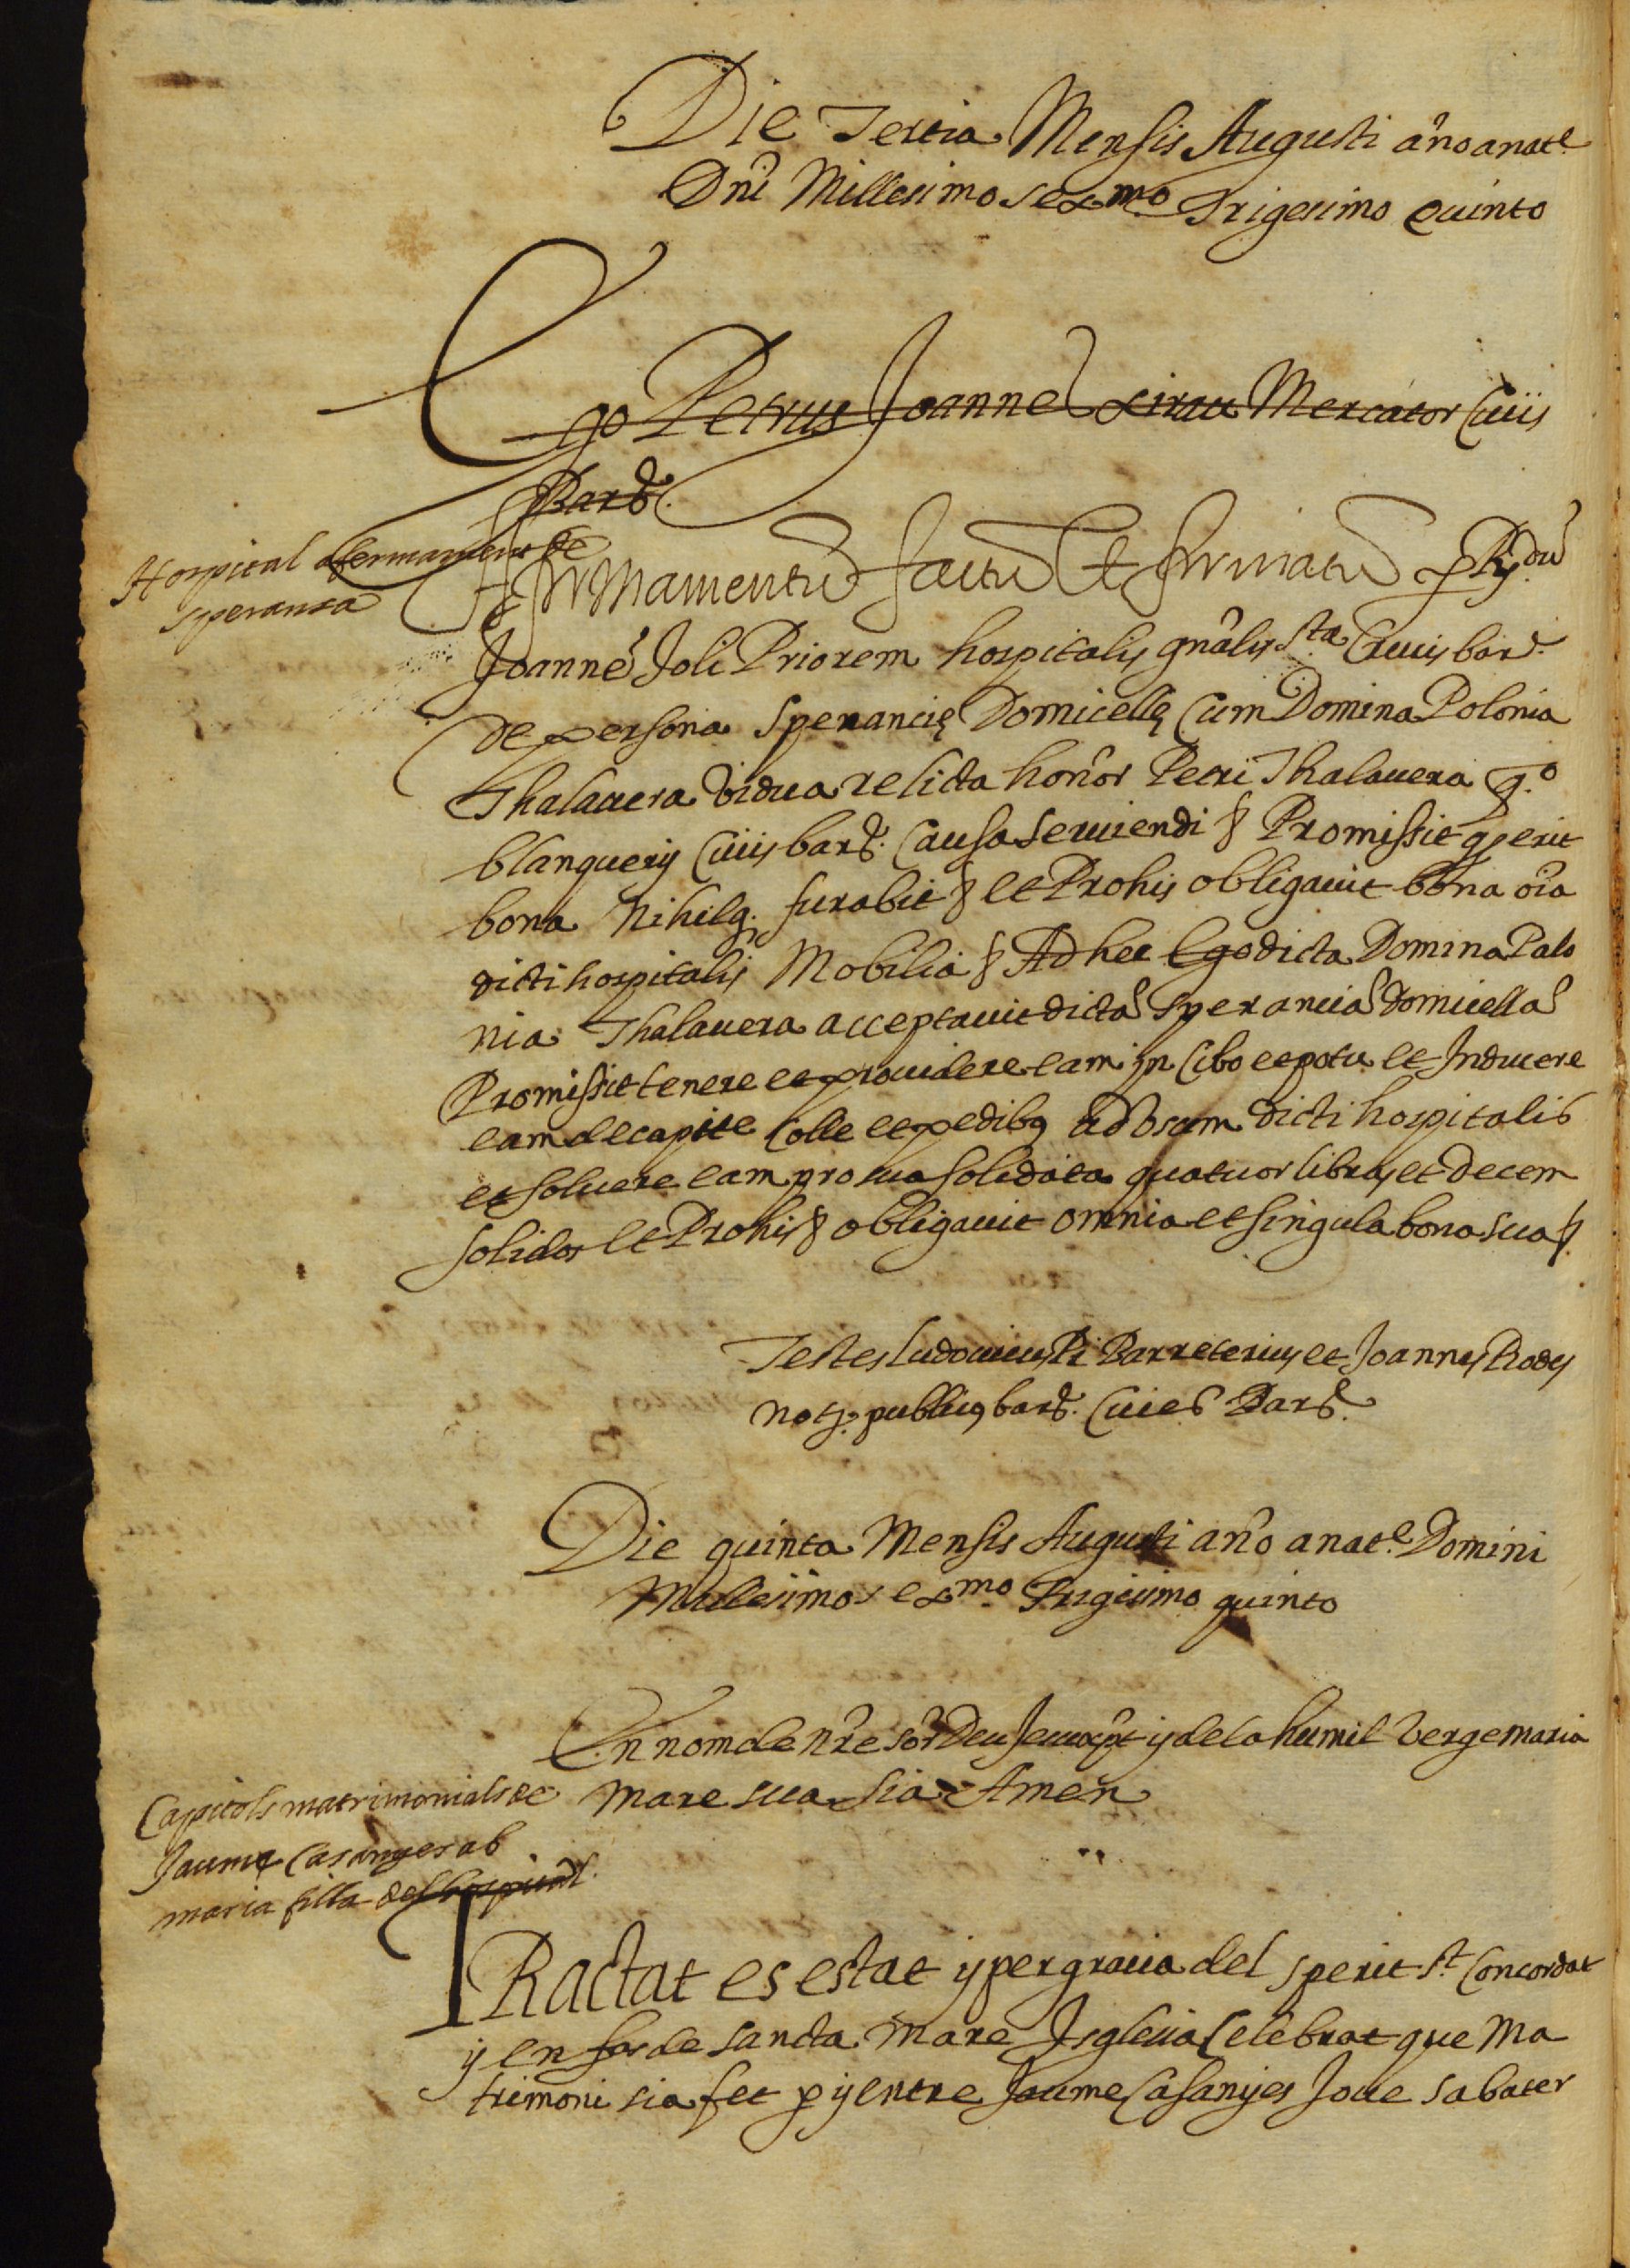 Die Tertia Mensis Augusti año anat.e
Dñi Millesimo sexmo Trigesimo quinto
Ego Petrus Joannes Mercator Civis
Barñ.
Hospital afermament de
speransa
Affirmamentũ factũ et firmatũ p Rdũ
Joannẽ Joli Priorem hospitalis gñalis sta Crucis barñ.
de persona Sperancię Domicellę cum Domina Polonia
Thalauera vidua relicta hoñor Petri Thalauera q.o
blanquerij Civis barñ. Causa seruiendi & Promissit q erit
bona Nihilq. furabit & et Pro his obligauit bona oĩa
dicti hospitalis Mobilia & Ad hec Ego dicta Domina Palo
nia Thalauera acceptauit dictã Speranciã domicellã
Promissit tenere et prouidere eam in Cibo et potu et Inducere
eam de capite Colle et pedibq ad vsum dicti hospitalis
et soluere eam pro sua solidata quatuor libras et decem
solidos et Pro his & obligauit omnia et singula bona sua &
Testes Ludouicus Pi Barreterius et Joannes Rodes
not. publicq barñ. Ciues Barñ.
Die quinta Mensis Augusti año anat.e Domini
Millesimo sexmo Trigesimo quinto
En nom de ñre sõr Deu Jesuxp̃t y de la humil Verge maria
mare sua sia Amen
Capitols matrimonials de
Jaume Casanyes ab
maria filla del hospital.
TRactat es estat y per gracia del sperit st Concordat
y en fas de sancta mare Isglesia Celebrat que Ma
trimoni sia fet p y entre Jaume Casanyes Joue sabater